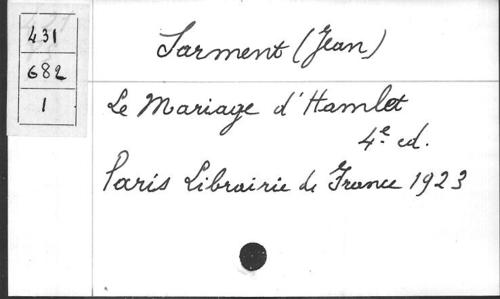 431
682
1
Sarment (Jean)
Le Mariage d'Hamlet
4e ed.
Paris Librairie de France 1923